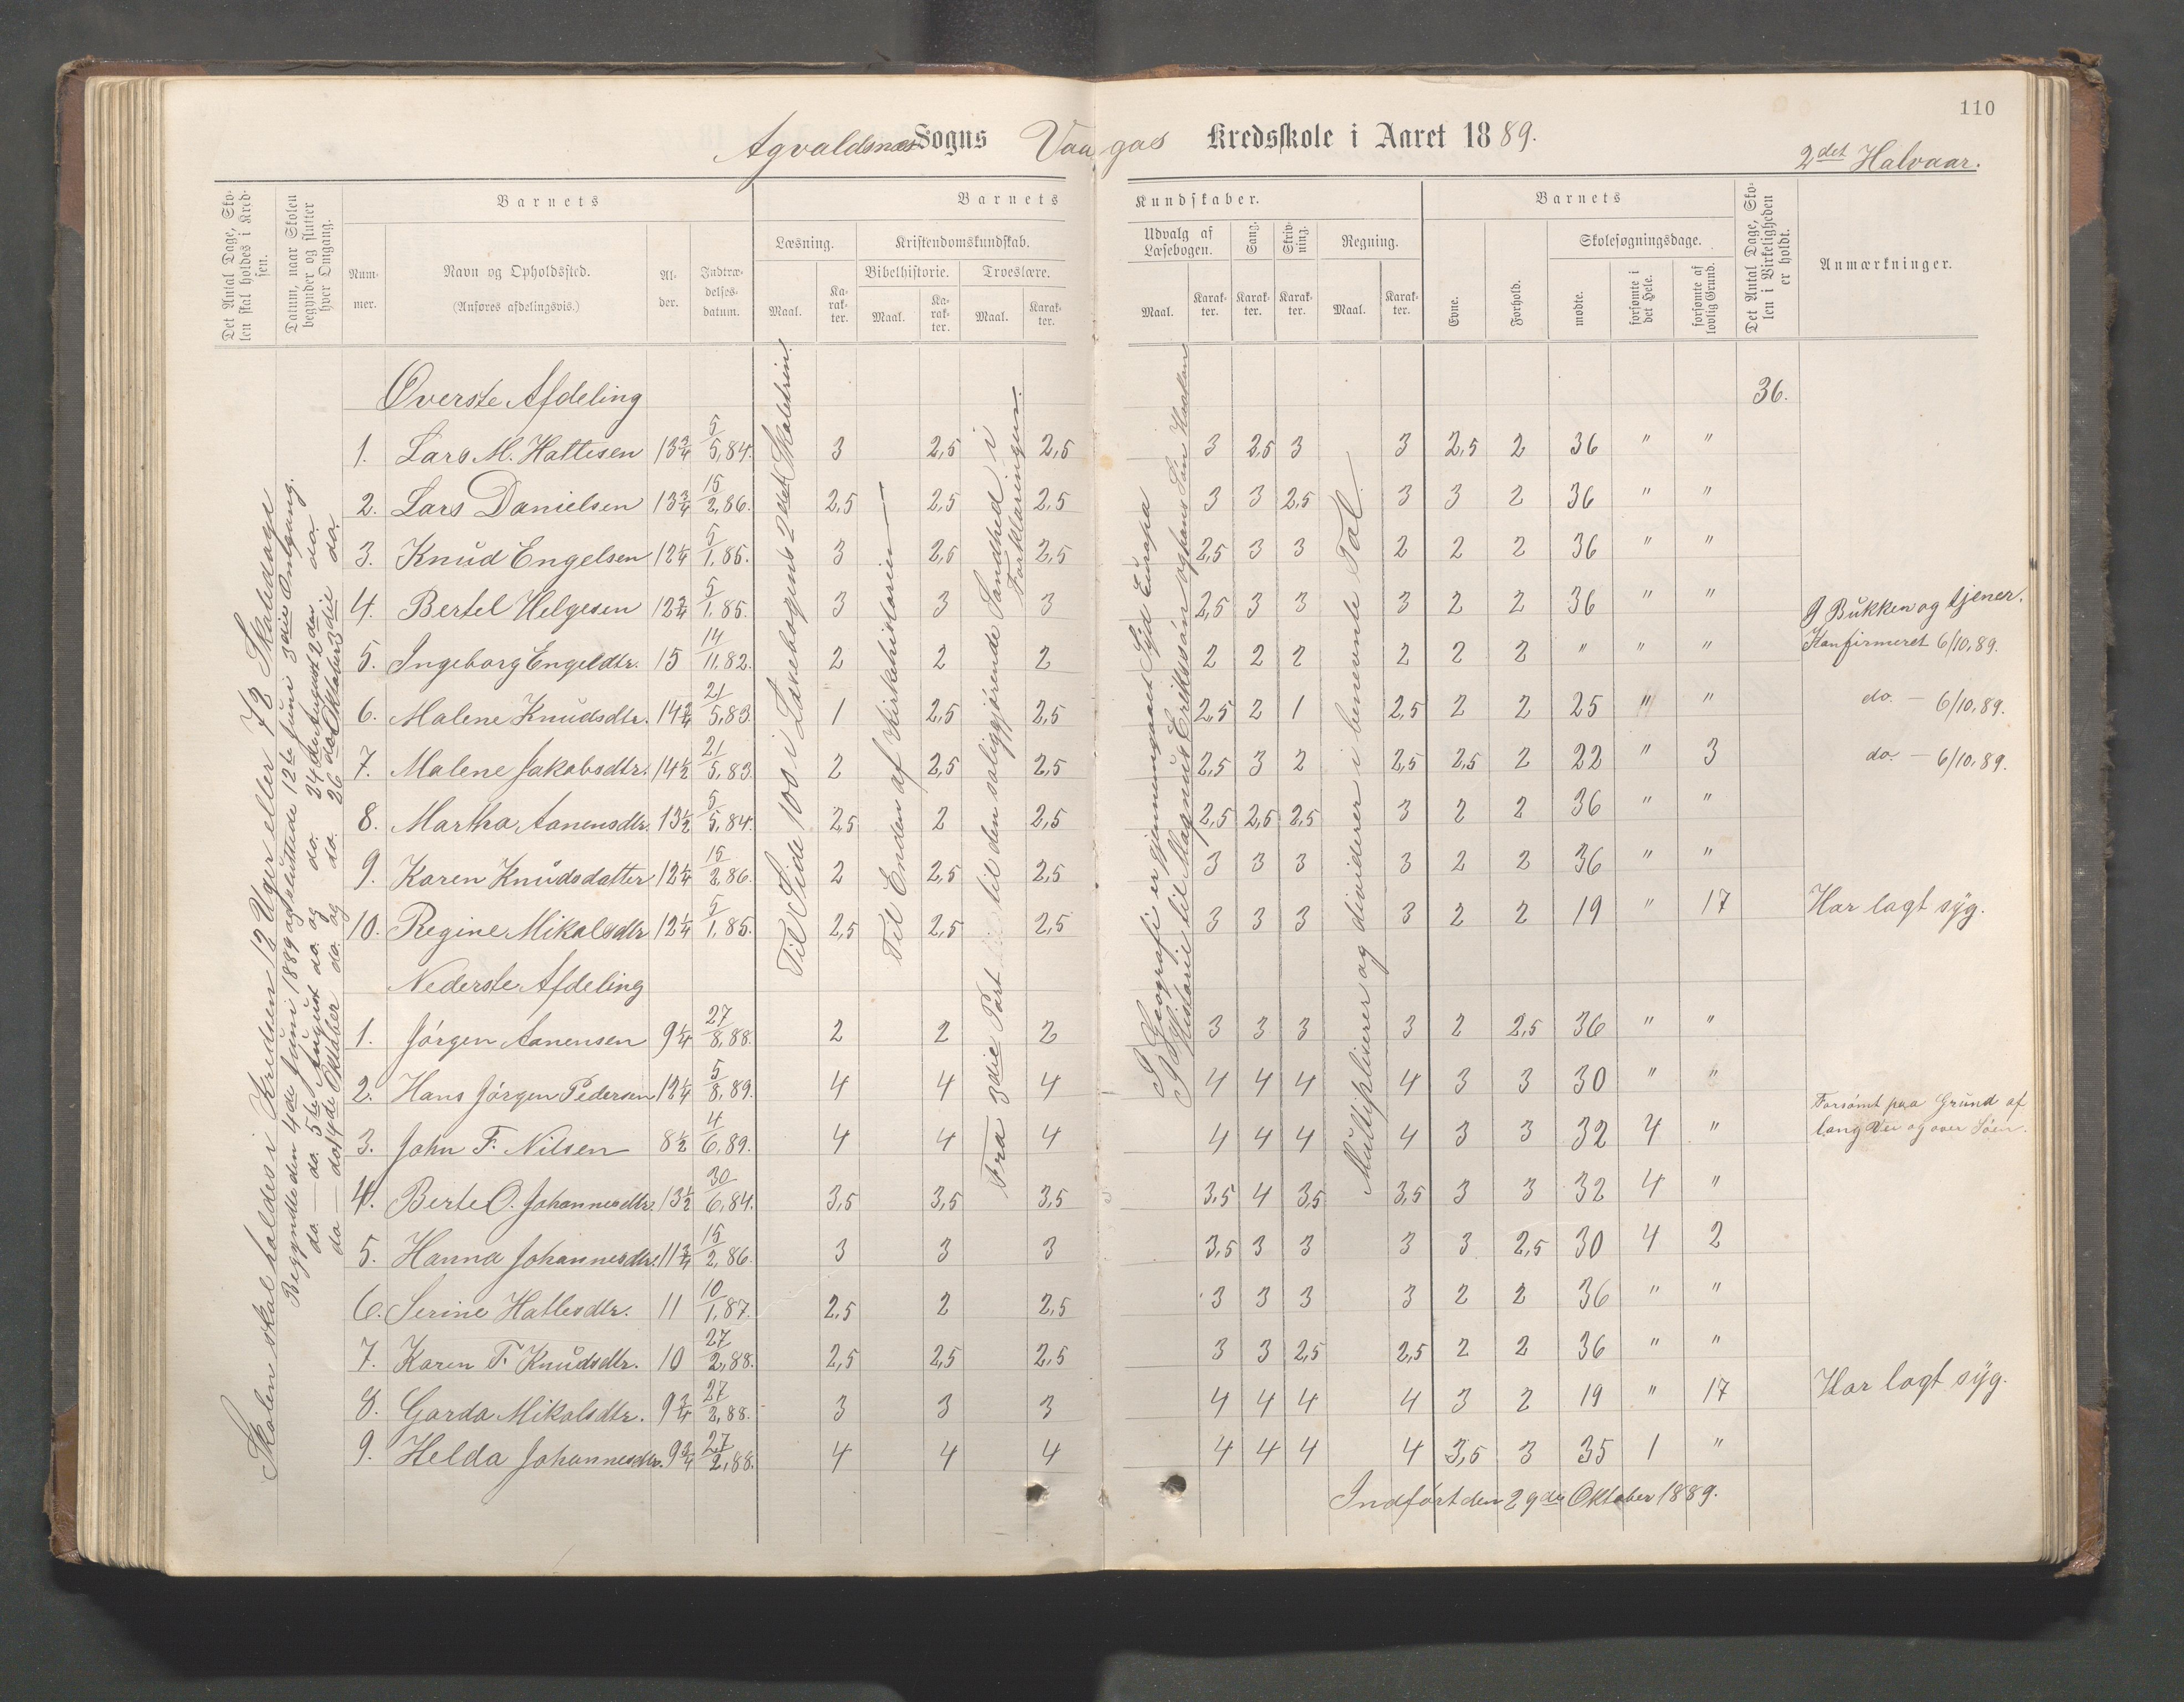 110
Agvaldsnæs Sogns Vaagas Kredsskole i Aaret 1889.
2det Halvaar.
Det Antal Dage, Skolen skal holdes i Kredsen.
Datum, naar Skolen begynder og slutter hver Omgang.
Barnets
Nummer.
Navn og Opholdssted.
(Anføres afdelingsvis.)
Alder.
Indtrædelsesdatum.
Barnets Kundskaber.
Læsning.
Maal.
Karakter.
Kristendomskundskab.
Bibelhistorie.
Maal.
Karakter.
Troeslære.
Maal.
Karakter.
Udvalg af Læsebogen.
Maal.
Karakter.
Sang.
Karakter.
Skrivning.
Karakter.
Regning.
Maal.
Karakter.
Barnets
Evne.
Forhold.
Skolesøgningsdage.
mødte.
forsømte i det Hele.
forsømte af lovlig Grund.
Det Antal Dage, Skolen i Virkeligheden er holdt.
Anmærkninger.
Skolen skal holdes i Kredsen 12 Uger eller 72 Skoledage
Begyndte den 4de Juni 1889 og sluttede 12te Juni 3die Omgang.
do. — do. 5te August do. og do. 24de August 2den do.
do — do 14de Oktober do. og do. 26de Oktober 3die do.
Til Side 100 i Læsebogens 2det Skoletrin
Til Enden af Kirkehistorien —
Fra 3die Part til den saliggjørende Sandhed i Forklaringen.
I Geografi er gjennemgaaet Syd Europa
I Historie til Magnus Erikssøn og hans Søn Haakon
Multiplicerer og dividerer i benevnte Tal.
Øverste Afdeling 36.
1. Lars M. Hattesen 13 3/4 5/5,84. 3 2,5 2,5 3 2,5 3 3 2,5 2 36 " "
2. Lars Danielsen 13 3/4 15/2,86. 2,5 2,5 2,5 3 3 2,5 3 3 2 36 " "
3. Knud Engelsen 12 1/4 5/1,85. 3 2,5 2,5 2,5 3 3 2 2 2 36 " "
4. Bertel Helgesen 12 3/4 5/1,85. 3 3 3 2,5 3 3 3 2 2 36 " " I Bukken og tjener.
5. Ingeborg Engeldtr. 15 14/11,82. 2 2 2 2 2 2 2 2 2 " " " Konfirmeret 6/10,89.
6. Malene Knudsdtr. 14 3/4 21/5,83. 1 2,5 2,5 2,5 2 1 2,5 2 2 25 " " do. — 6/10,89.
7. Malene Jakobsdtr. 14 1/2 21/5,83. 2 2,5 2,5 2,5 3 2 2,5 2,5 2 22 " 3 do. — 6/10,89.
8. Martha Aanensdtr. 13 1/2 5/5,84. 2,5 2 2,5 2,5 2,5 2,5 3 2 2 36 " "
9. Karen Knudsdatter 12 1/4 15/2,86. 2 2,5 2,5 3 3 3 3 2 2 36 " "
10. Regine Mikalsdtr 12 1/4 5/1,85. 2,5 2,5 2,5 3 3 3 3 2 2 19 " 17 Har lagt syg.
Nederste Afdeling
1. Jørgen Aanensen 9 1/4 27/8,88. 2 2 2 3 3 3 3 2 2,5 36 " "
2. Hans Jørgen Pedersen 12 1/4 5/8,89. 4 4 4 4 4 4 4 3 3 30 " "
3. John F. Nilsen 8 1/2 4/6,89. 4 4 4 4 4 4 4 3 3 32 4 " Forsømt paa Grund af lang Vei og over Søen.
4. Berte O. Johannesdtr. 13 1/2 30/6,84. 3,5 3,5 3,5 3,5 4 3,5 3,5 3 3 32 4 "
5. Hanna Johannesdtr. 11 3/4 15/2,86. 3 3 3 3,5 3 3 3 3 2,5 30 4 2
6. Serine Hattesdtr. 11 10/1,87. 2,5 2 2,5 3 3 3 3 2 2 36 " "
7. Karen T. Knudsdtr. 10 27/2,88. 2,5 2,5 2,5 3 3 2,5 2,5 2 2 36 " "
8. Garda Mikalsdtr. 9 3/4 27/2,88. 3 3 3 4 4 4 4 3 2 19 " 17 Har lagt syg.
9. Helda Johannesdtr. 9 3/4 27/2,88. 4 4 4 4 4 4 4 3,5 3 35 1 "
Indført den 29de Oktober 1889.